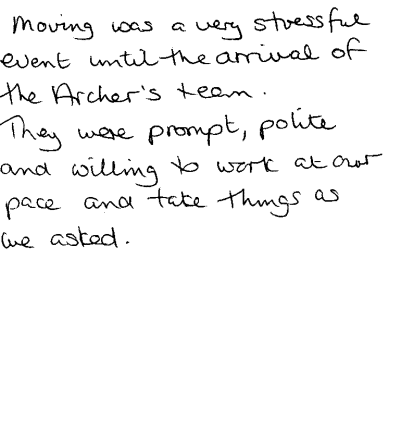 Moving was a very stressful
event until the arrival of
the Archer's team.
They were prompt, polite
and willing to work at our
pace and take things as
we asked.